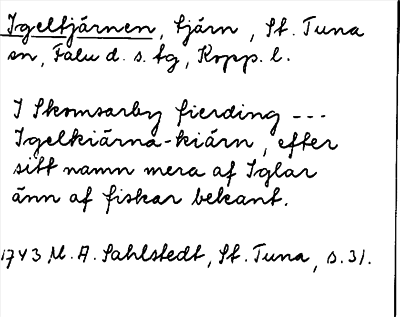 Igeltjärnen, tjärn, St. Tuna
sn, Falu d. s. tg, Kopp. l.
I Skomsarby fierding ---
Igelkiärna-kiärn, efter
sitt namn mera af Iglar
änn af fiskar bekant.
1743 M. A. Sahlstedt, St. Tuna, s. 31.